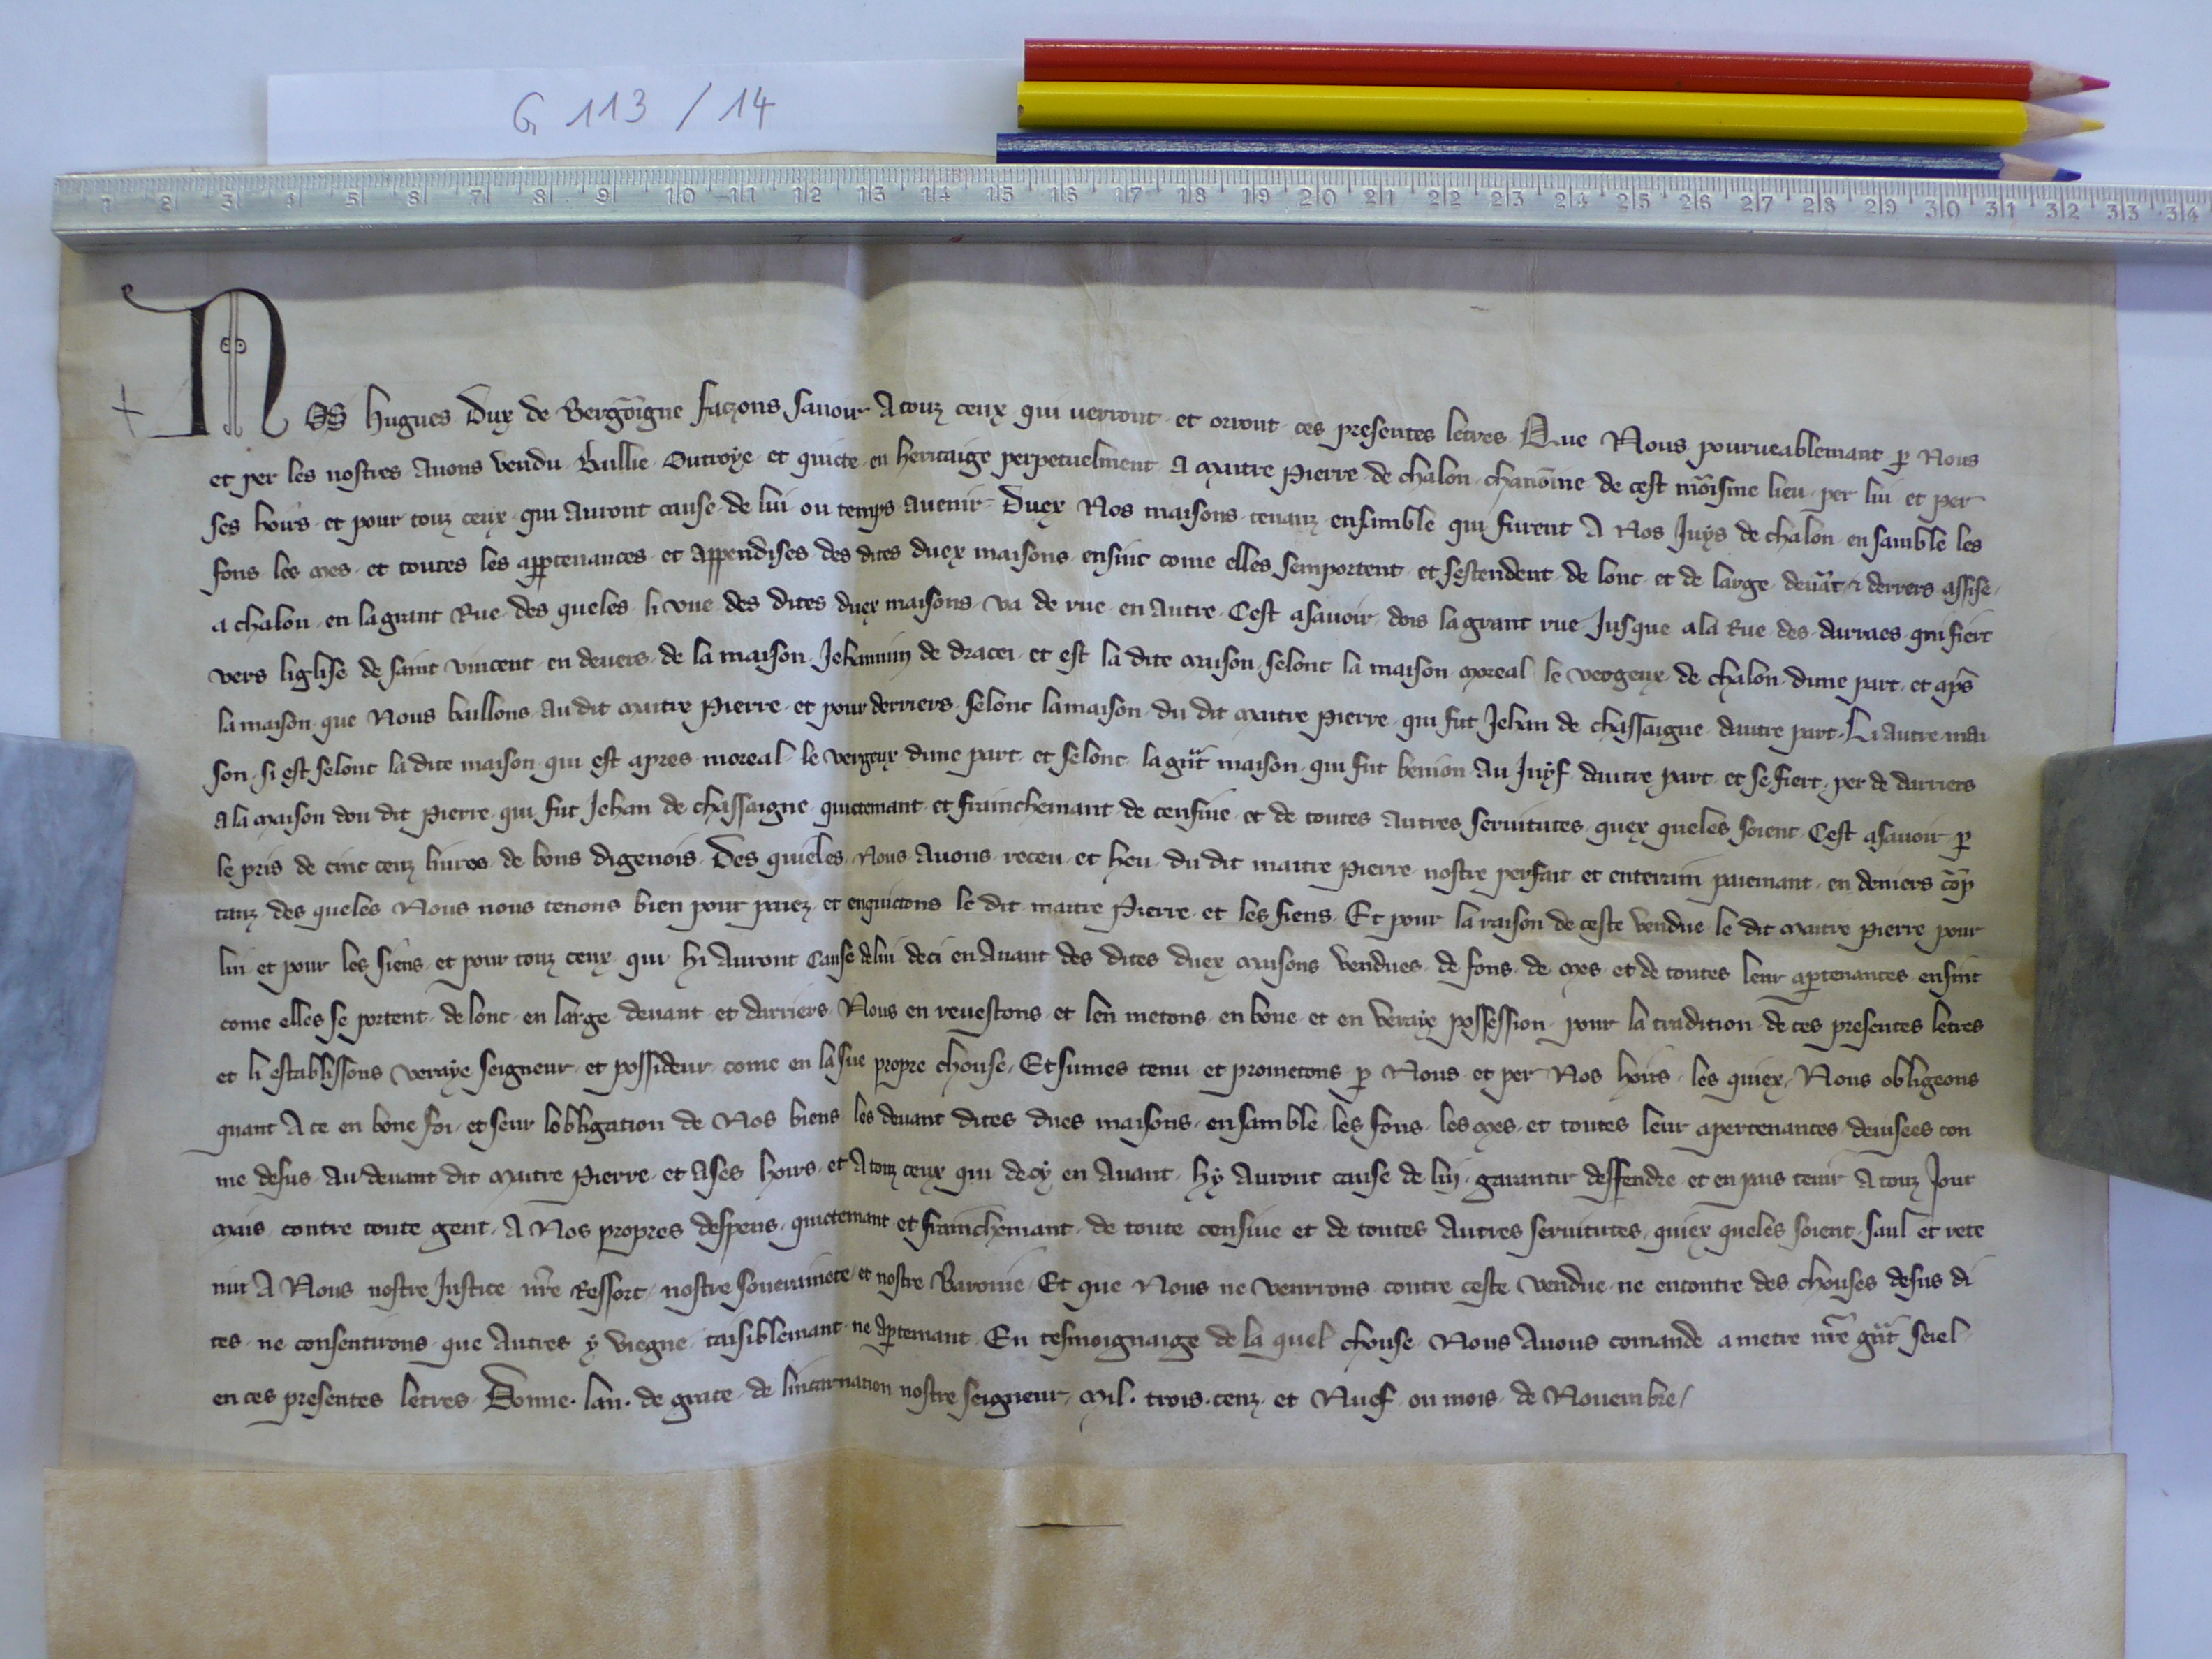 G 113 / 14
1 2 3 4 5 6 7 8 9 10 11 12 13 14 15 16 17 18 19 20 21 22 23 24 25 26 27 28 29 30 31 32 33 34
NOS hugues Dux de Bergoigne façzons sauour A touz ceux qui uerront et orront ces presentes letres Que Nous pourueablemant p Nous
et per les nostres Auons vendu Baillie Outroye et quicte en heritaige perpetuelment a maitre Pierre de chalon chanoine de cest moisme lieu per lui et per
ses hoirs et pour touz ceux qui Auront cause de lui ou temps auenir Duex Nos maisons tenanz ensamble qui furent A Nos Juys de chalon ensamble les
fons les mes et toutes les appertenances et appendises des dites duex maisons ensinc come elles semportent et sestendent de lonc et de large deuat & derrers assise
a chalon en la grant Rue des queles li vne des dites duex maisons va de rue en autre Cest asauoir dois la grant rue Jusque a la Rue des darraes qui fiert
vers liglise de saint vincent en deuers de la maison Jehannin de dracei et est la dite maison selonc la maison moreal le vergeux de chalon dune part et aps
la maison que Nous baillons au dit maitre Pierre et pour derriers selonc la maison du dit maitre Pierre qui fut Jehan de chassaigne dautre part Li autre mai
son si est selonc la dite maison qui est apres moreal le vergeux dune part et selonc la gnt maison qui fut benion au Juyf dautre part et se fiert per de darriers
a la maison dou dit Pierre qui fut Jehan de chassaigne quictemant et frainchemant de censiue et de toutes autres seruitutes quex queles soient Cest asauoir p
le pris de cinc cenz liures de bons digenois Des quieles Nous Auons receu et heu du dit maitre Pierre nostre perfait et enterin paiemant en deniers cop
tanz des queles Nous nous tenons bien pour paiez et enquictons le dit maitre Pierre et les siens Et pour la raison de ceste vendue le dit maitre pierre pour
lui et pour les siens et pour touz ceux qui hi Auront Cause de lui deci en Auant des dites duex maisons vendues de fons de mes et de toutes leur apertenances ensinc
come elles se portent de lonc en large deuant et darriers Nous en reuestons et len metons en bone et en veraye possession pour la tradition de ces presentes letres
et li establissons veraye seigneur et possideur come en la sue propre chouse Et sumes tenu et prometons p Nous et per Nos hoirs les quiex Nous obligeons
quant A ce en bone foi et seur lobligation de Nos biens les deuant dites dues maisons ensamble les fons les mes et toutes leur apertenances deuisees con
me desus Au deuant dit maitre Pierre et A ses hoirs et A touz ceux qui de cy en Auant hy Auront cause de luy garantir deffendre et en pais tenir A touz Jour
mais contre toute gent A Nos propres despens quictemant et frainchemant de toute censiue et de toutes Autres seruitutes quiex queles soient saul et rete
nu A Nous nostre Justice nre Ressort nostre souerainete et nostre Baronie Et que Nous ne venrrons contre ceste vendue ne encontre des chouses desus di
tes ne consentirons que Autres y viegne taisiblemant ne apertemant En tesmoignaige de la quel chouse Nous Auons comande a metre nre gnt seiel
en ces presentes letres Donne lan de grace de lincarnation nostre seigneur Mil trois cenz et Nuef ou mois de Nouembre